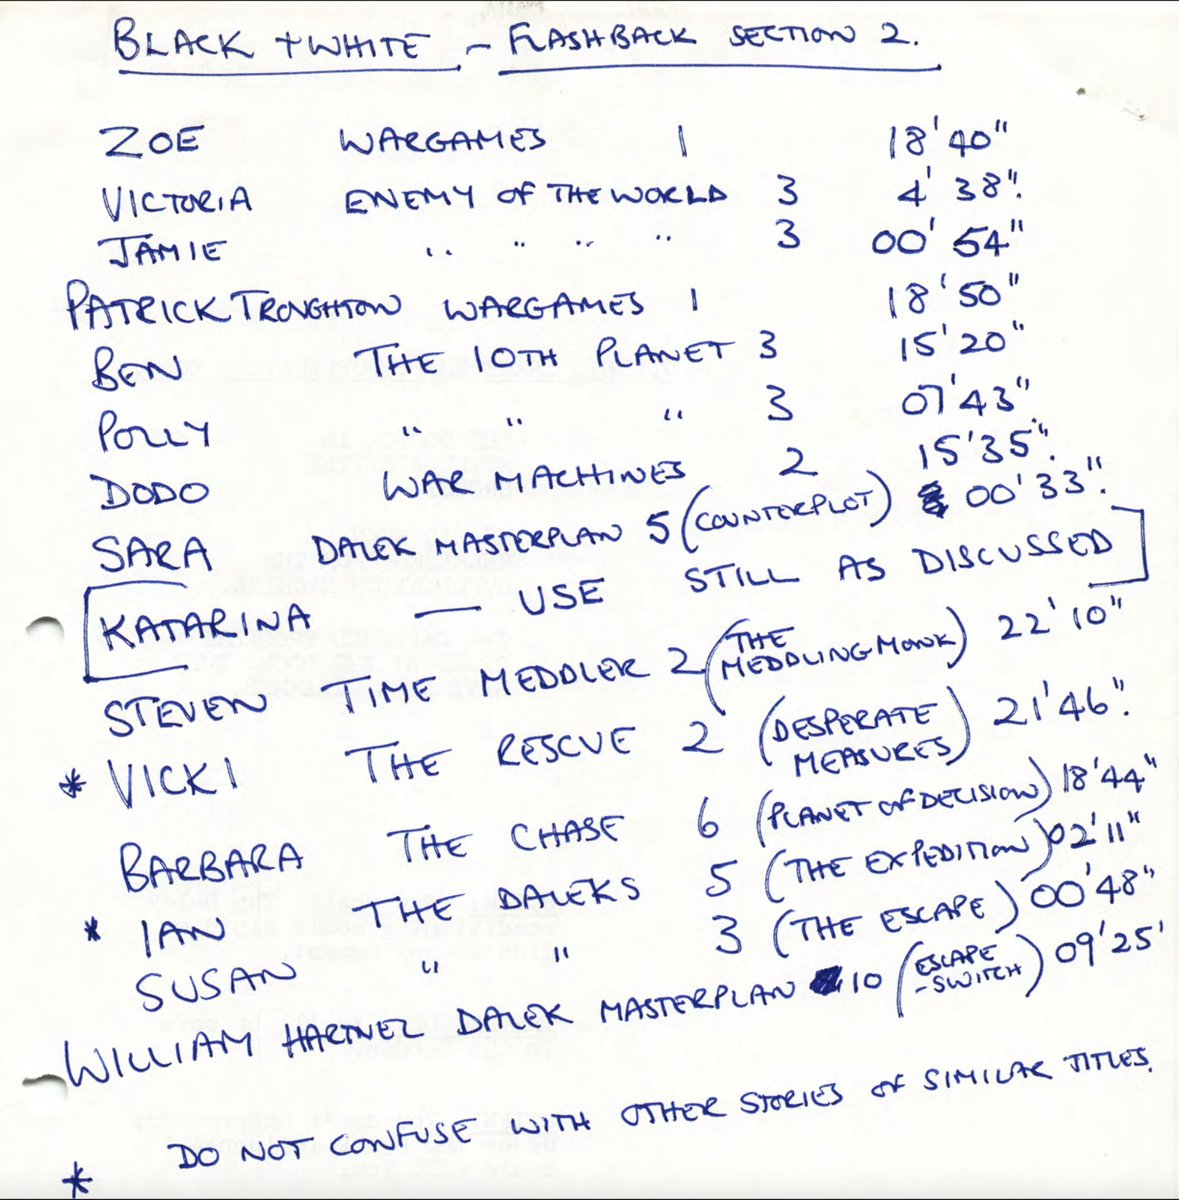 BLACK + WHITE - FLASHBACK SECTION 2.
ZOE WARGAMES 1 18'40"
VICTORIA ENEMY OF THE WORLD 3 4'38".
JAMIE " " " " 3 00'54"
PATRICK TROUGHTON WARGAMES 1 18'50"
BEN THE 10TH PLANET 3 15'20"
POLLY " " " 3 07'43"
DODO WAR MACHINES 2 15'35".
SARA DALEK MASTERPLAN 5 (COUNTERPLOT) 00'33".
[KATARINA — USE STILL AS DISCUSSED]
STEVEN TIME MEDDLER 2 (THE MEDDLING MONK) 22'10"
* VICKI THE RESCUE 2 (DESPERATE MEASURES) 21'46".
BARBARA THE CHASE 6 (PLANET OF DECISION) 18'44"
* IAN THE DALEKS 5 (THE EXPEDITION) 02'11"
SUSAN " " 3 (THE ESCAPE) 00'48"
WILLIAM HARTNEL DALEK MASTERPLAN 10 (ESCAPE -SWITCH) 09'25'
* DO NOT CONFUSE WITH OTHER STORIES OF SIMILAR TITLES.